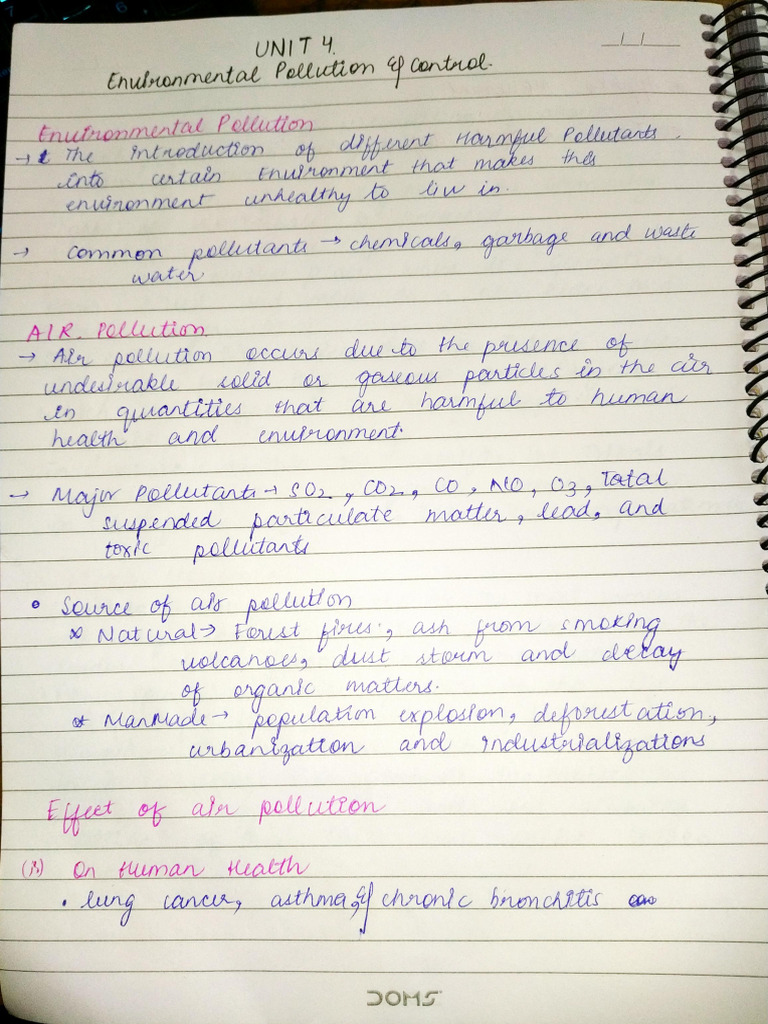 UNIT 4.
Environmental Pollution & Control.
Environmental Pollution
→ The introduction of different Harmful Pollutants.
into certain Environment that makes this
environment unhealthy to live in.
→ Common pollutants → chemicals, garbage and waste
water
AIR. Pollution
→ Air pollution occurs due to the presence of
undesirable solid or gaseous particles in the air
in quantities that are harmful to human
health and environment.
→ Major Pollutants → SO2, CO2, CO, NO, O3, Total
suspended particulate matter, lead, and
toxic pollutants
• Source of air pollution
* Natural → Forest fires, ash from smoking
volcanoes, dust storm and decay
of organic matters.
* ManMade → population explosion, deforestation,
urbanization and industrializations
Effect of air pollution
(i) On Human Health
• lung cancer, asthma, & chronic bronchitis
DOMS